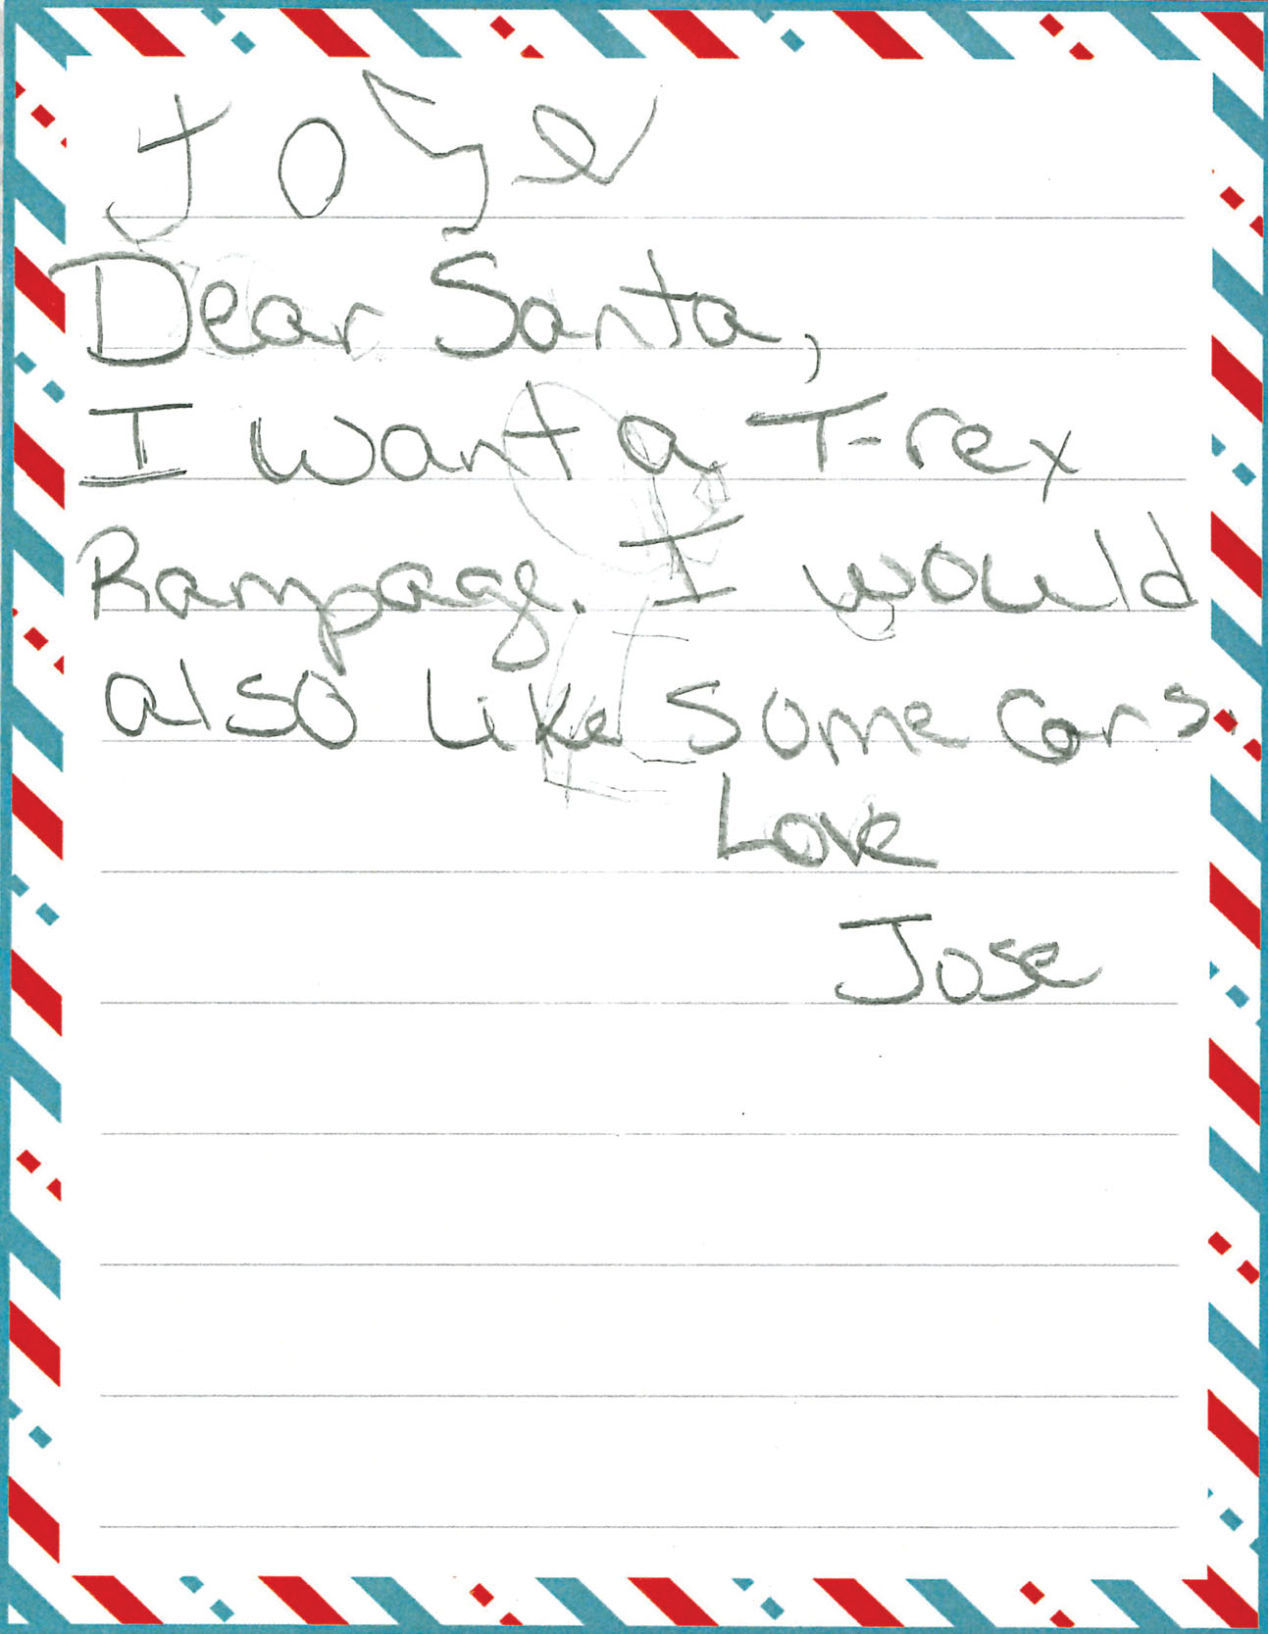 Jose
Dear Santa,
I want a T-rex
Rampage. I would
also like some cars.
Love
Jose